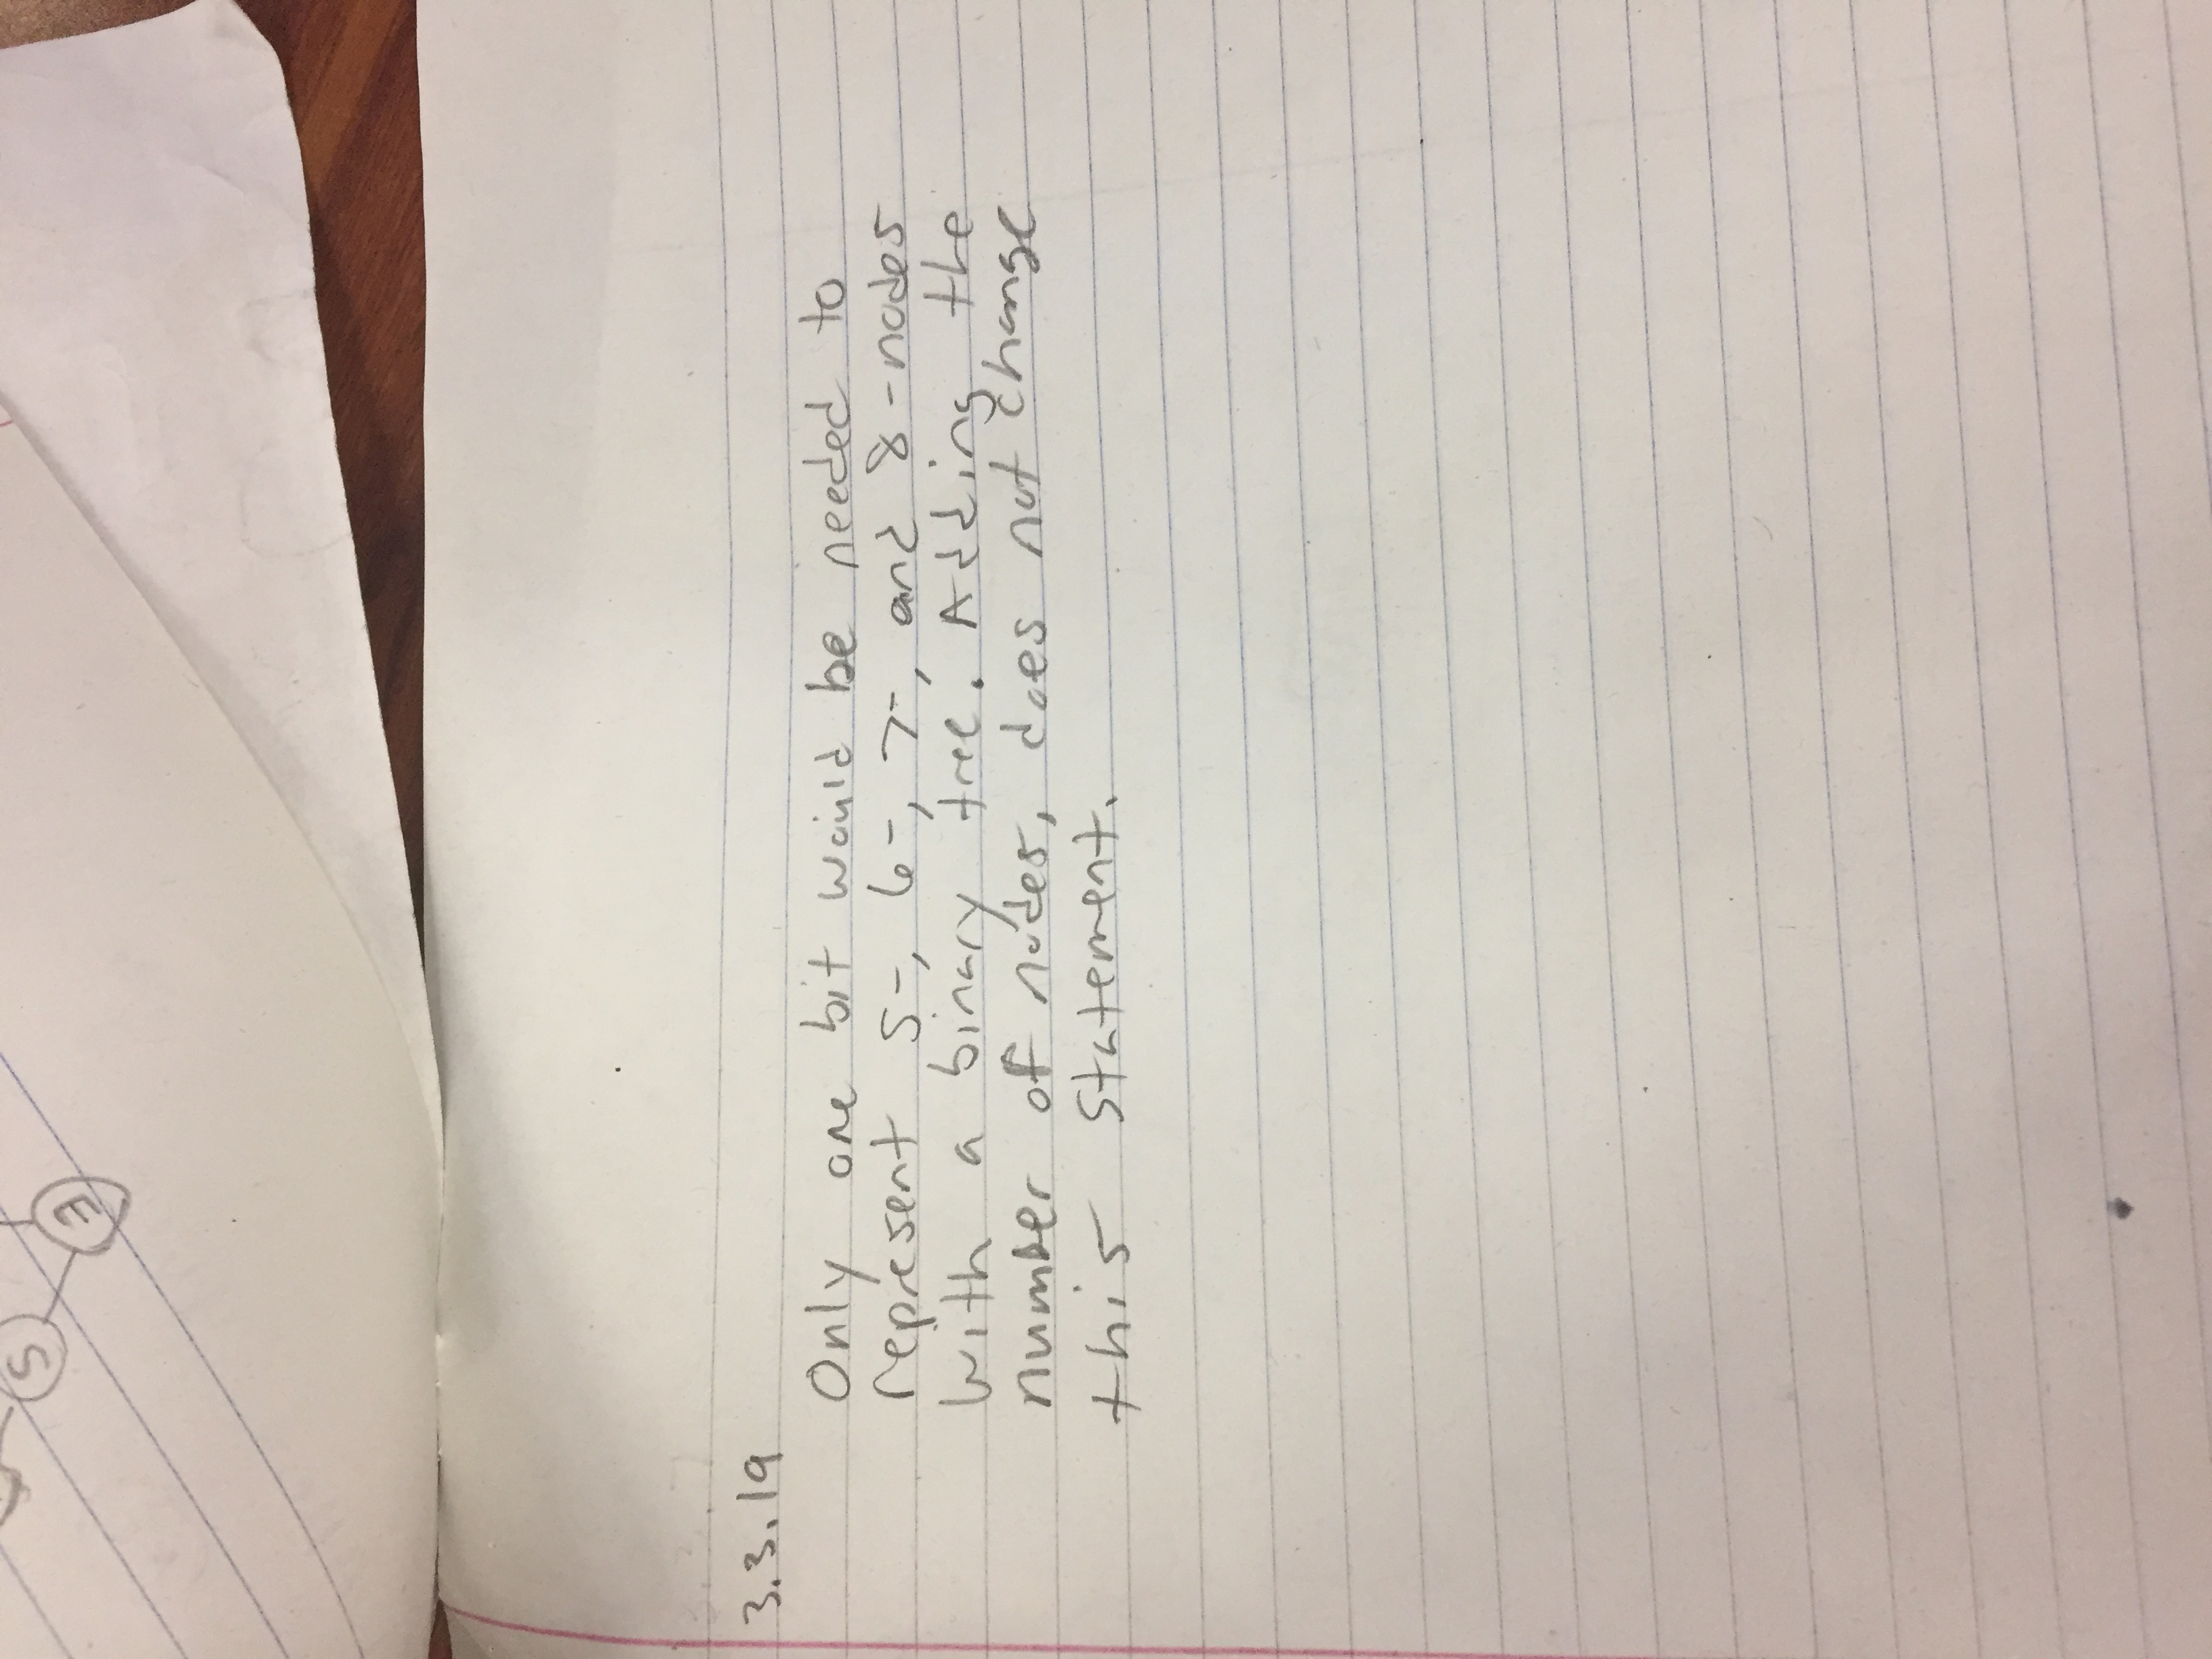 5
3
3.3.19
Only one bit would be needed to
represent 5-, 6-, 7-, and 8-nodes
with a binary tree. Adding the
number of nodes, does not change
this statement.